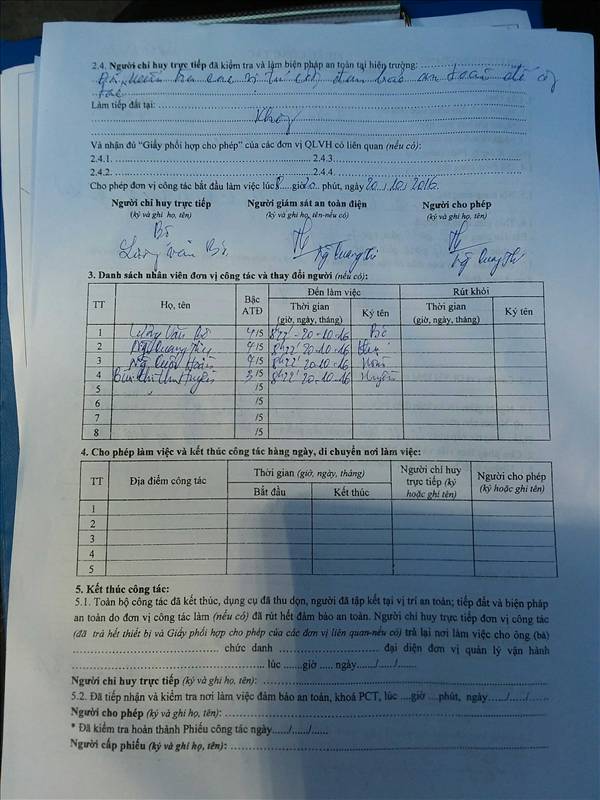 2.4. Người chỉ huy trực tiếp đã kiểm tra và làm biện pháp an toàn tại hiện trường:
Đã kiểm tra các vị trí công đảm bảo an toàn để công
tác
Làm tiếp đất tại:
Không
Và nhận đủ "Giấy phối hợp cho phép" của các đơn vị QLVH có liên quan (nếu có):
2.4.1. 2.4.3.
2.4.2. 2.4.4.
Cho phép đơn vị công tác bắt đầu làm việc lúc 8 giờ 20 phút, ngày 20 / 10 / 2016
Người chỉ huy trực tiếp Người giám sát an toàn điện Người cho phép
(ký và ghi họ, tên) (ký và ghi họ, tên-nếu có) (ký và ghi họ, tên)
Bô
3. Danh sách nhân viên đơn vị công tác và thay đổi người (nếu có):
TT Họ, tên Bậc ATĐ Đến làm việc Rút khỏi
Thời gian (giờ, ngày, tháng) Ký tên Thời gian (giờ, ngày, tháng) Ký tên
1 Văn Bô 4/5 8h22' - 20-10-16 Bô
2 Quang 4/5 8h22' 20-10-16
3 4/5 8h22' 20-10-16 Hoàn
4 Bùi Thị Thu Huyền 3/5 8h22' 20-10-16 Huyền
5 /5
6 /5
7 /5
8 /5
4. Cho phép làm việc và kết thúc công tác hàng ngày, di chuyển nơi làm việc:
TT Địa điểm công tác Thời gian (giờ, ngày, tháng) Người chỉ huy trực tiếp (ký hoặc ghi tên) Người cho phép (ký hoặc ghi tên)
Bắt đầu Kết thúc
1
2
3
4
5
5. Kết thúc công tác:
5.1. Toàn bộ công tác đã kết thúc, dụng cụ đã thu dọn, người đã tập kết tại vị trí an toàn; tiếp đất và biện pháp
an toàn do đơn vị công tác làm (nếu có) đã rút hết đảm bảo an toàn. Người chỉ huy trực tiếp đơn vị công tác
(đã trả hết thiết bị và Giấy phối hợp cho phép của các đơn vị liên quan-nếu có) trả lại nơi làm việc cho ông (bà)
chức danh đại diện đơn vị quản lý vận hành
lúc ......giờ ..... ngày....../....../......
Người chỉ huy trực tiếp (ký và ghi họ, tên):
5.2. Đã tiếp nhận và kiểm tra nơi làm việc đảm bảo an toàn, khoá PCT, lúc ....giờ ....phút, ngày....../....../......
Người cho phép (ký và ghi họ, tên):
* Đã kiểm tra hoàn thành Phiếu công tác ngày....../....../......
Người cấp phiếu (ký và ghi họ, tên):